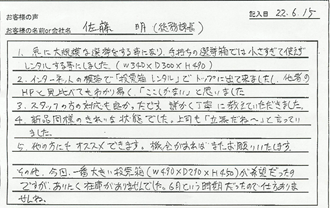 お客様の声
記入日 22.6.15
お客様の名前or会社名 佐藤 明（総務課長）
1. 急に大規模な選挙をする事になり、手持ちの選挙箱では小さすぎて使えず
レンタルする事にしました。（W340×D300×H490）
2. インターネットの検索で「投票箱 レンタル」でトップに出て来ましたし、他者の
HPと見比べてもわかり易く、「ここがいい」と思いました
3. スタッフの方の対応も良かったです。細かく丁寧に教えていただきました
4. 新品同様のきれいな状態でした。上司も「立派だね〜」と言って
いました。
5. 他の方にもオススメできます。機会があればまたお願いいたします
その他、今回、一番大きい投票箱（W490×D290×H450）が希望だった
ですが、ありにく在庫がありませんでした。6月という時期だったので仕方ありま
せんね。